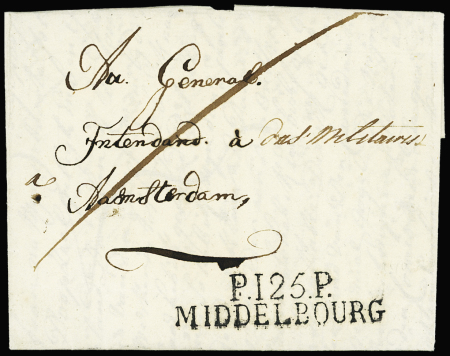 Au. General.
Intendand. à das Militaires
a Aamsterdam,
P.125.P.
MIDDELBOURG